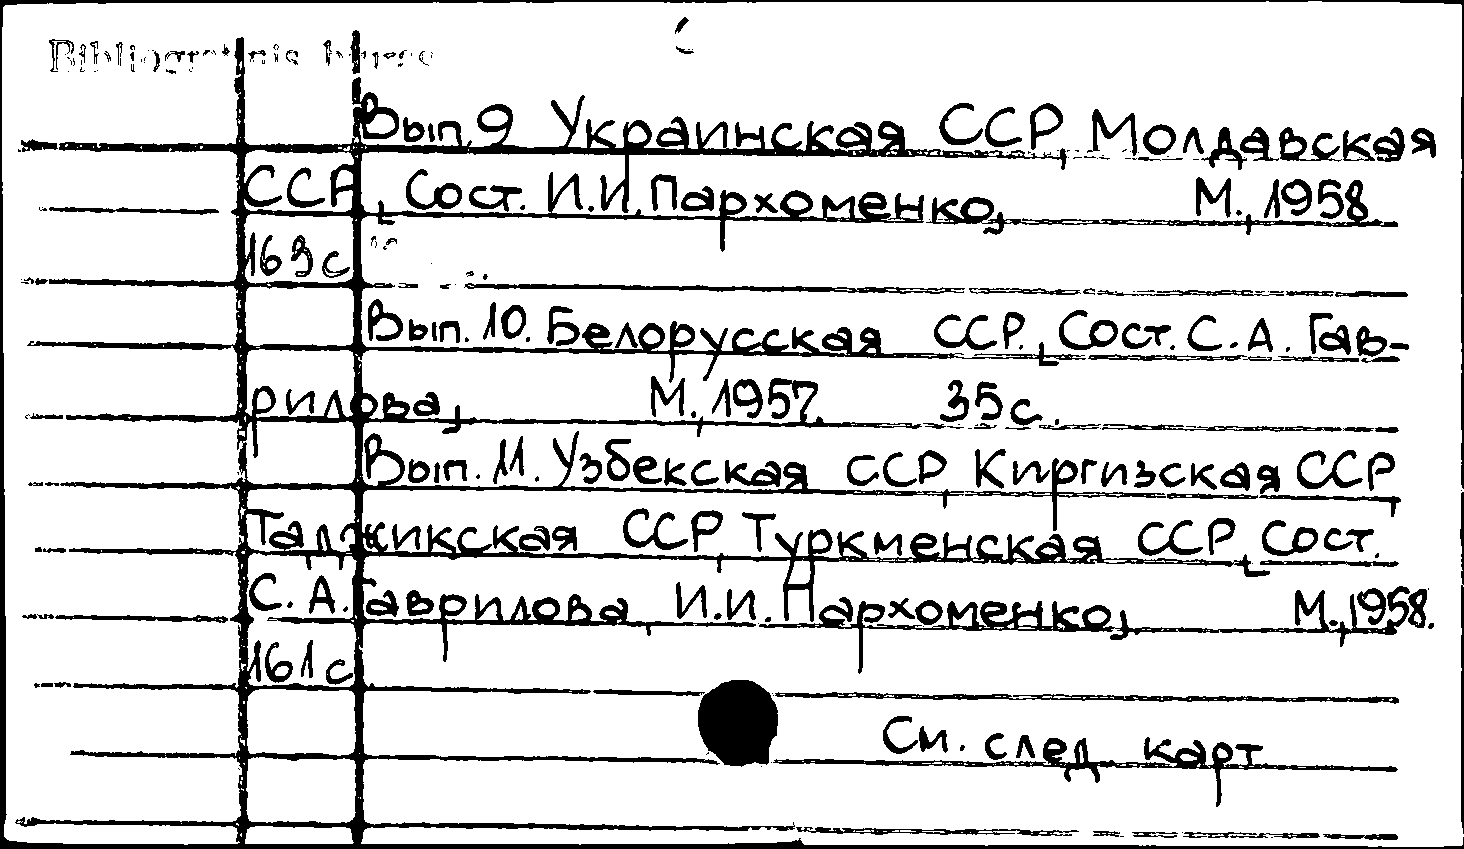 Вып. 9 Украинская ССР, Молдавская
ССР, [Сост. И.И. Пархоменко] М., 1958
169 с
Вып. 10. Белорусская ССР. [Сост. С.А. Гав-
рилова] М., 1957. 35 с.
Вып. 11. Узбекская ССР, Киргизская ССР,
Таджикская ССР, Туркменская ССР [Сост.
С.А. Гаврилова, И.И. Пархоменко] М., 1958.
161 с
См. след. карт